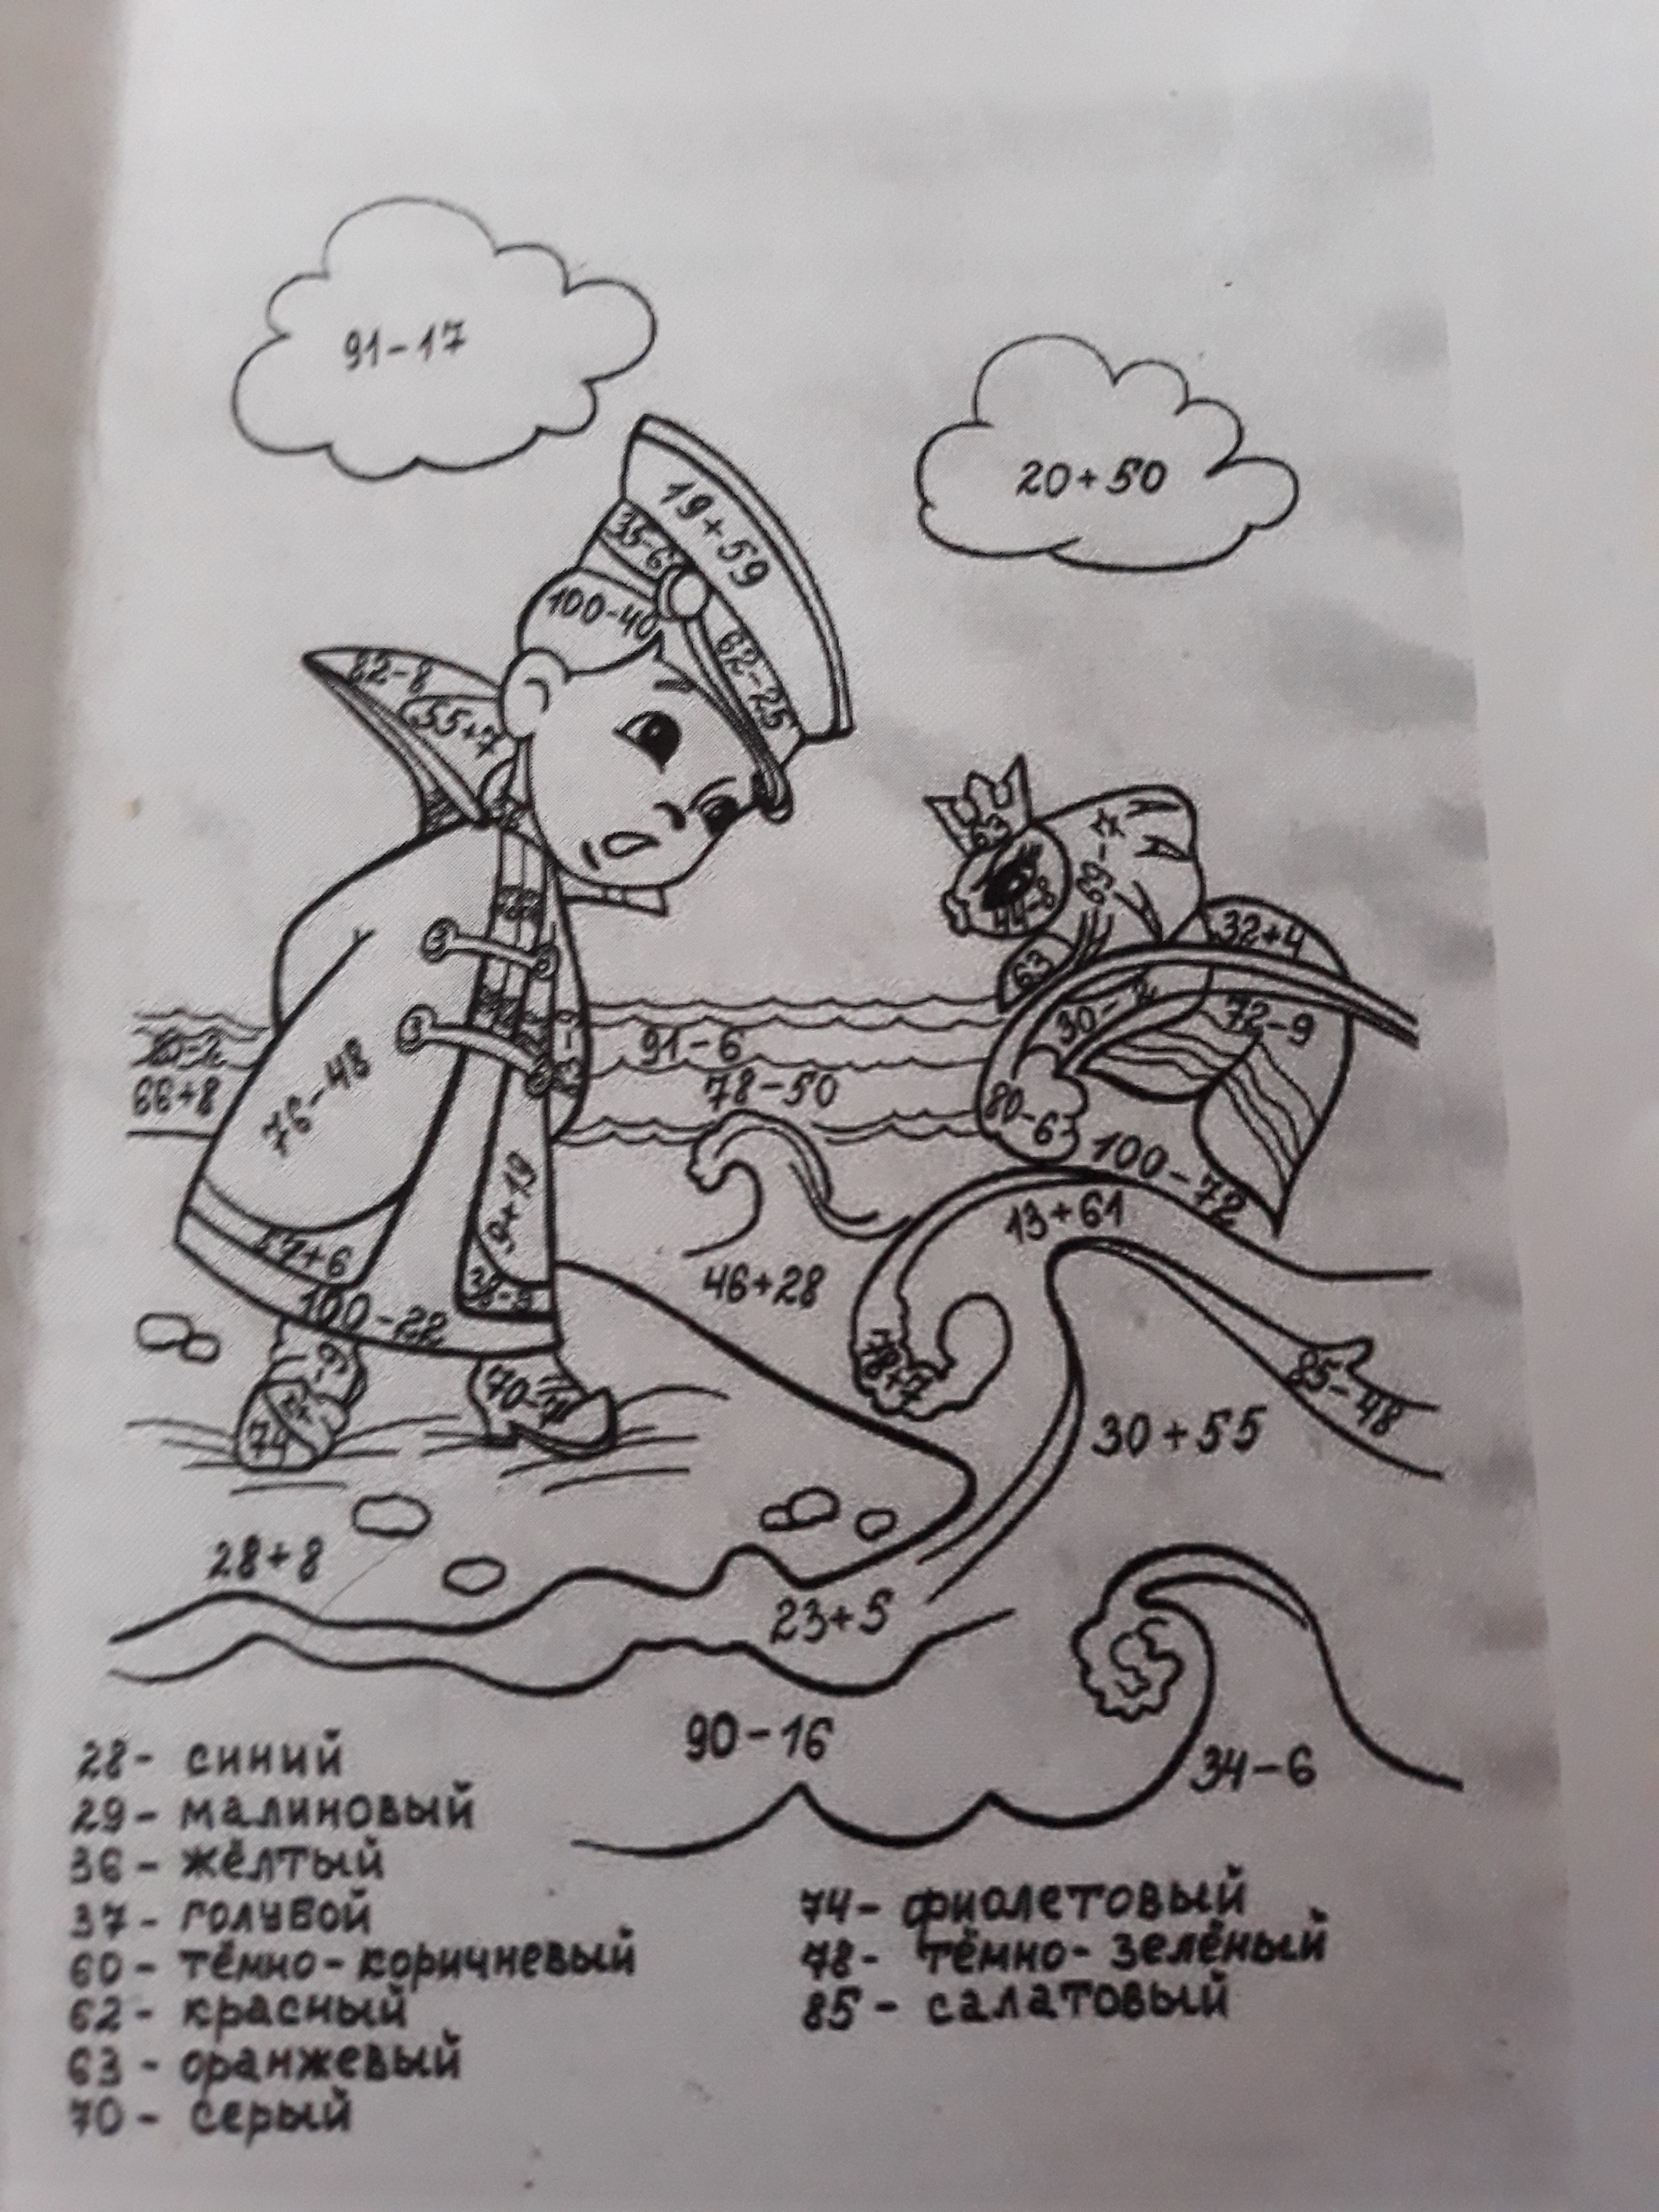 91-17
20+50
19+59
35-6
100-40
62-25
55+7
63
69-7
32+4
63
30-2
72-9
91-6
78-50
66+8
76-48
80-6
100-72
13+61
9+19
57+6
46+28
100-22
78+7
85-48
74
30+55
28+8
23+5
90-16
34-6
28- синий
29- малиновый
36- жёлтый
37- голубой
60- тёмно-коричневый
62- красный
63- оранжевый
70- серый
74- фиолетовый
78- тёмно-зелёный
85- салатовый